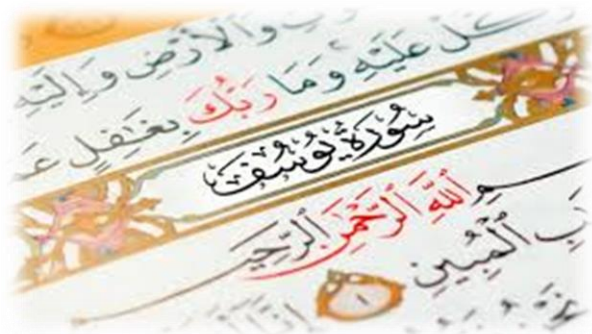 وَٱلْأَرْضِ وَإِلَيْهِ
كَّلْ عَلَيْهِ وَمَا رَبُّكَ بِغَٰفِلٍ عَ
سُورَةُ يُوسُفَ
مِ ٱللَّهِ ٱلرَّحْمَٰنِ ٱلرَّحِي
بِ ٱلْمُبِينِ ١ إِنَّآ